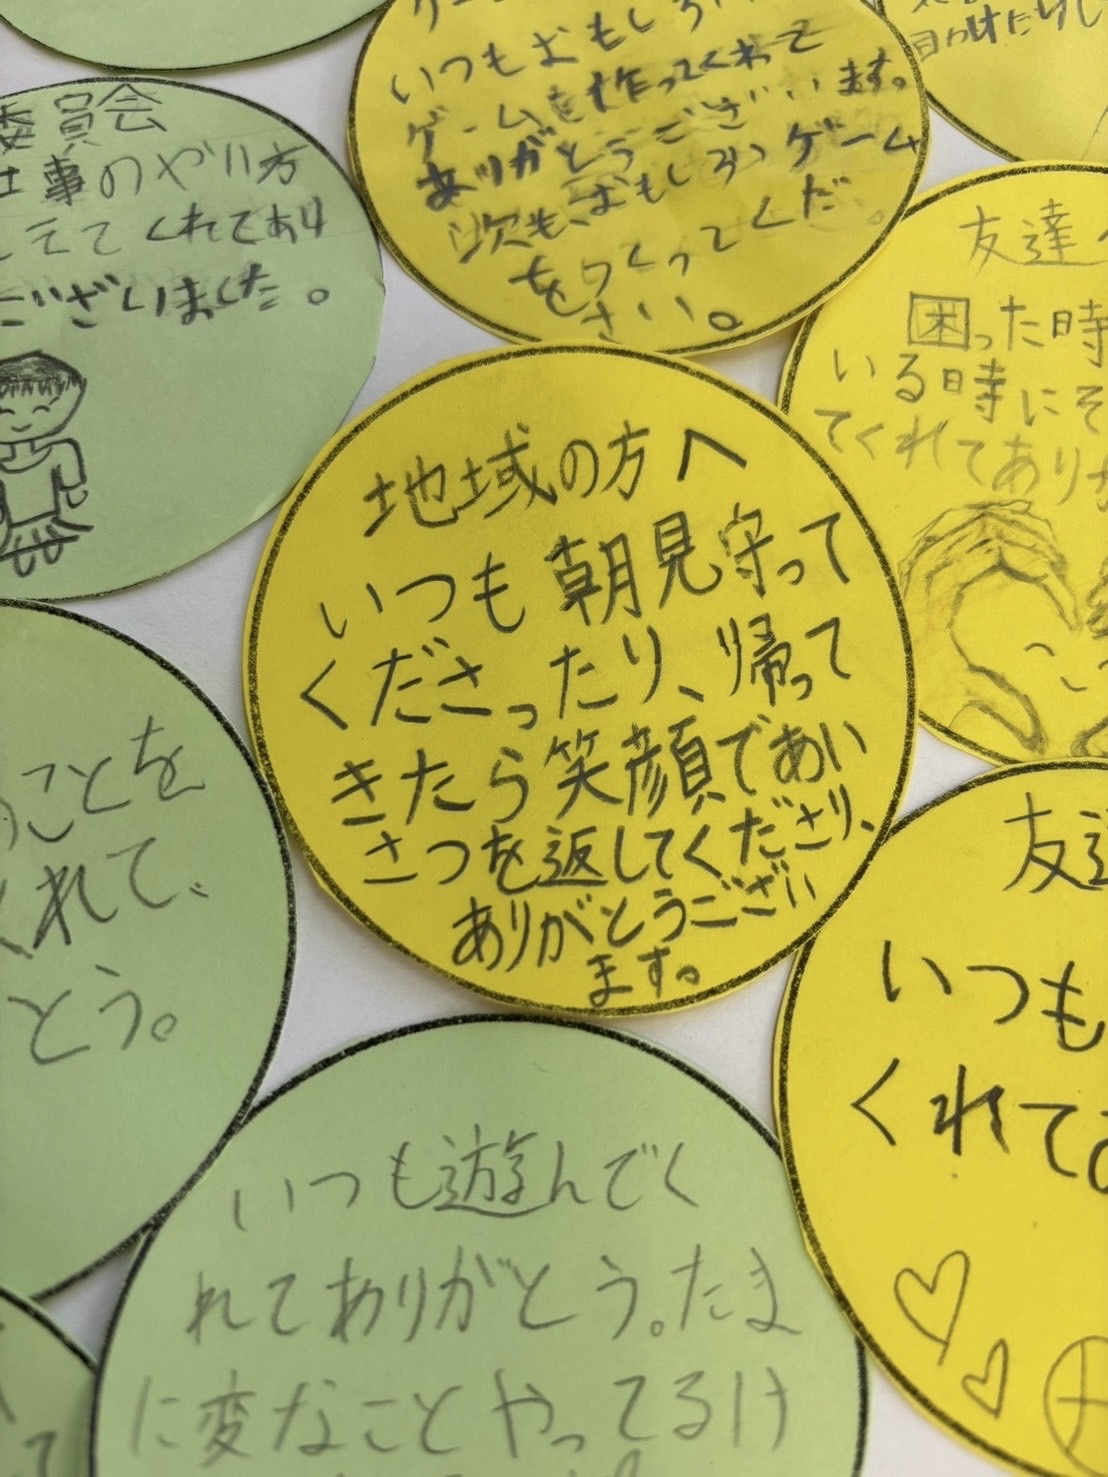 委員会
仕事のやり方
えてくれてあり
ございました。
いつもおもしろ
ゲームを作ってくれて
ありがとうございます。
次も、おもしろいゲーム
をつくってくだ
さい。
友達へ
困った時
いる時にそ
てくれてありが
地域の方へ
いつも朝見守って
くださったり、帰って
きたら笑顔であい
さつを返してくださり、
ありがとうござい
ます。
のことを
くれて、
とう。
友達
いつも
くれてあ
いつも遊んでく
れてありがとう。たま
に変なことやってるけ